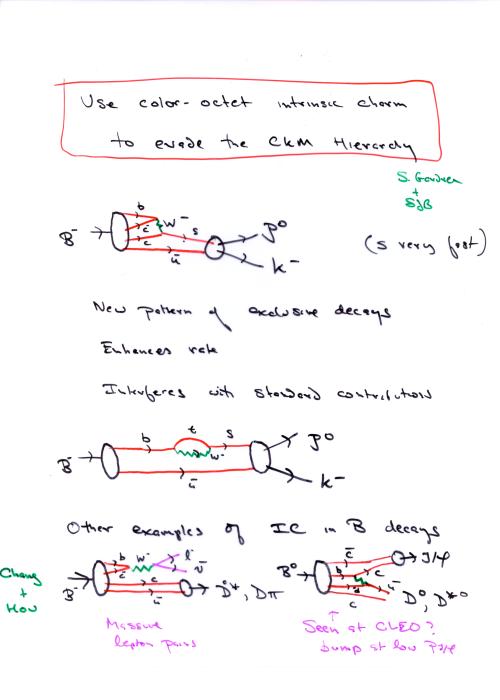 Use color-octet intrinsic charm
to evade the CKM Hierarchy
S. Gardner
+
SJB
B⁻ b c̄ c ū W⁻ s ρ⁰ K⁻
(s very fast)
New pattern of exclusive decays
Enhances rate
Interferes with standard contributions
B⁻ b t s W⁻ ū ρ⁰ K⁻
Other examples of IC in B decays
Chang
+
Hou
B⁻ b c̄ W⁻ l⁻ ν̄ c ū D*, Dπ
B⁰ c̄ b c ū d c J/ψ D⁰, D*⁰
Massive
lepton pairs
Seen at CLEO?
bump at low P J/ψ